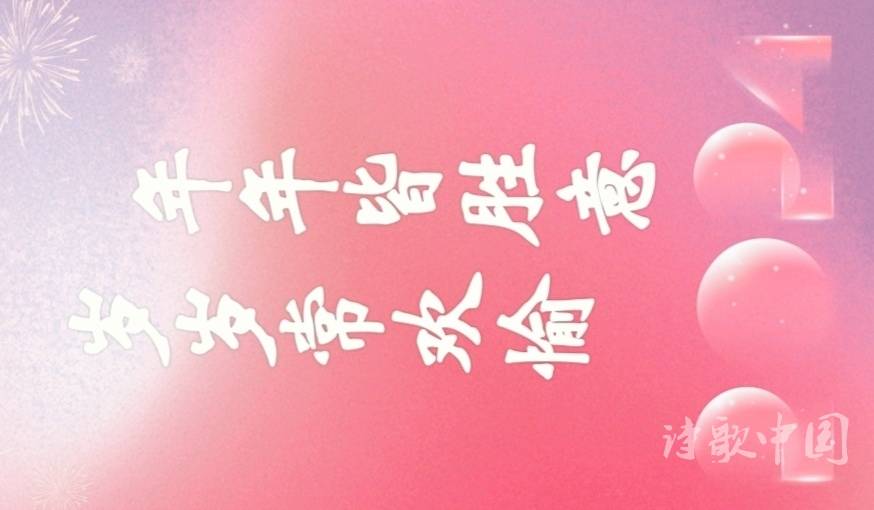 岁岁常欢愉
年年皆胜意
2024
诗歌中国